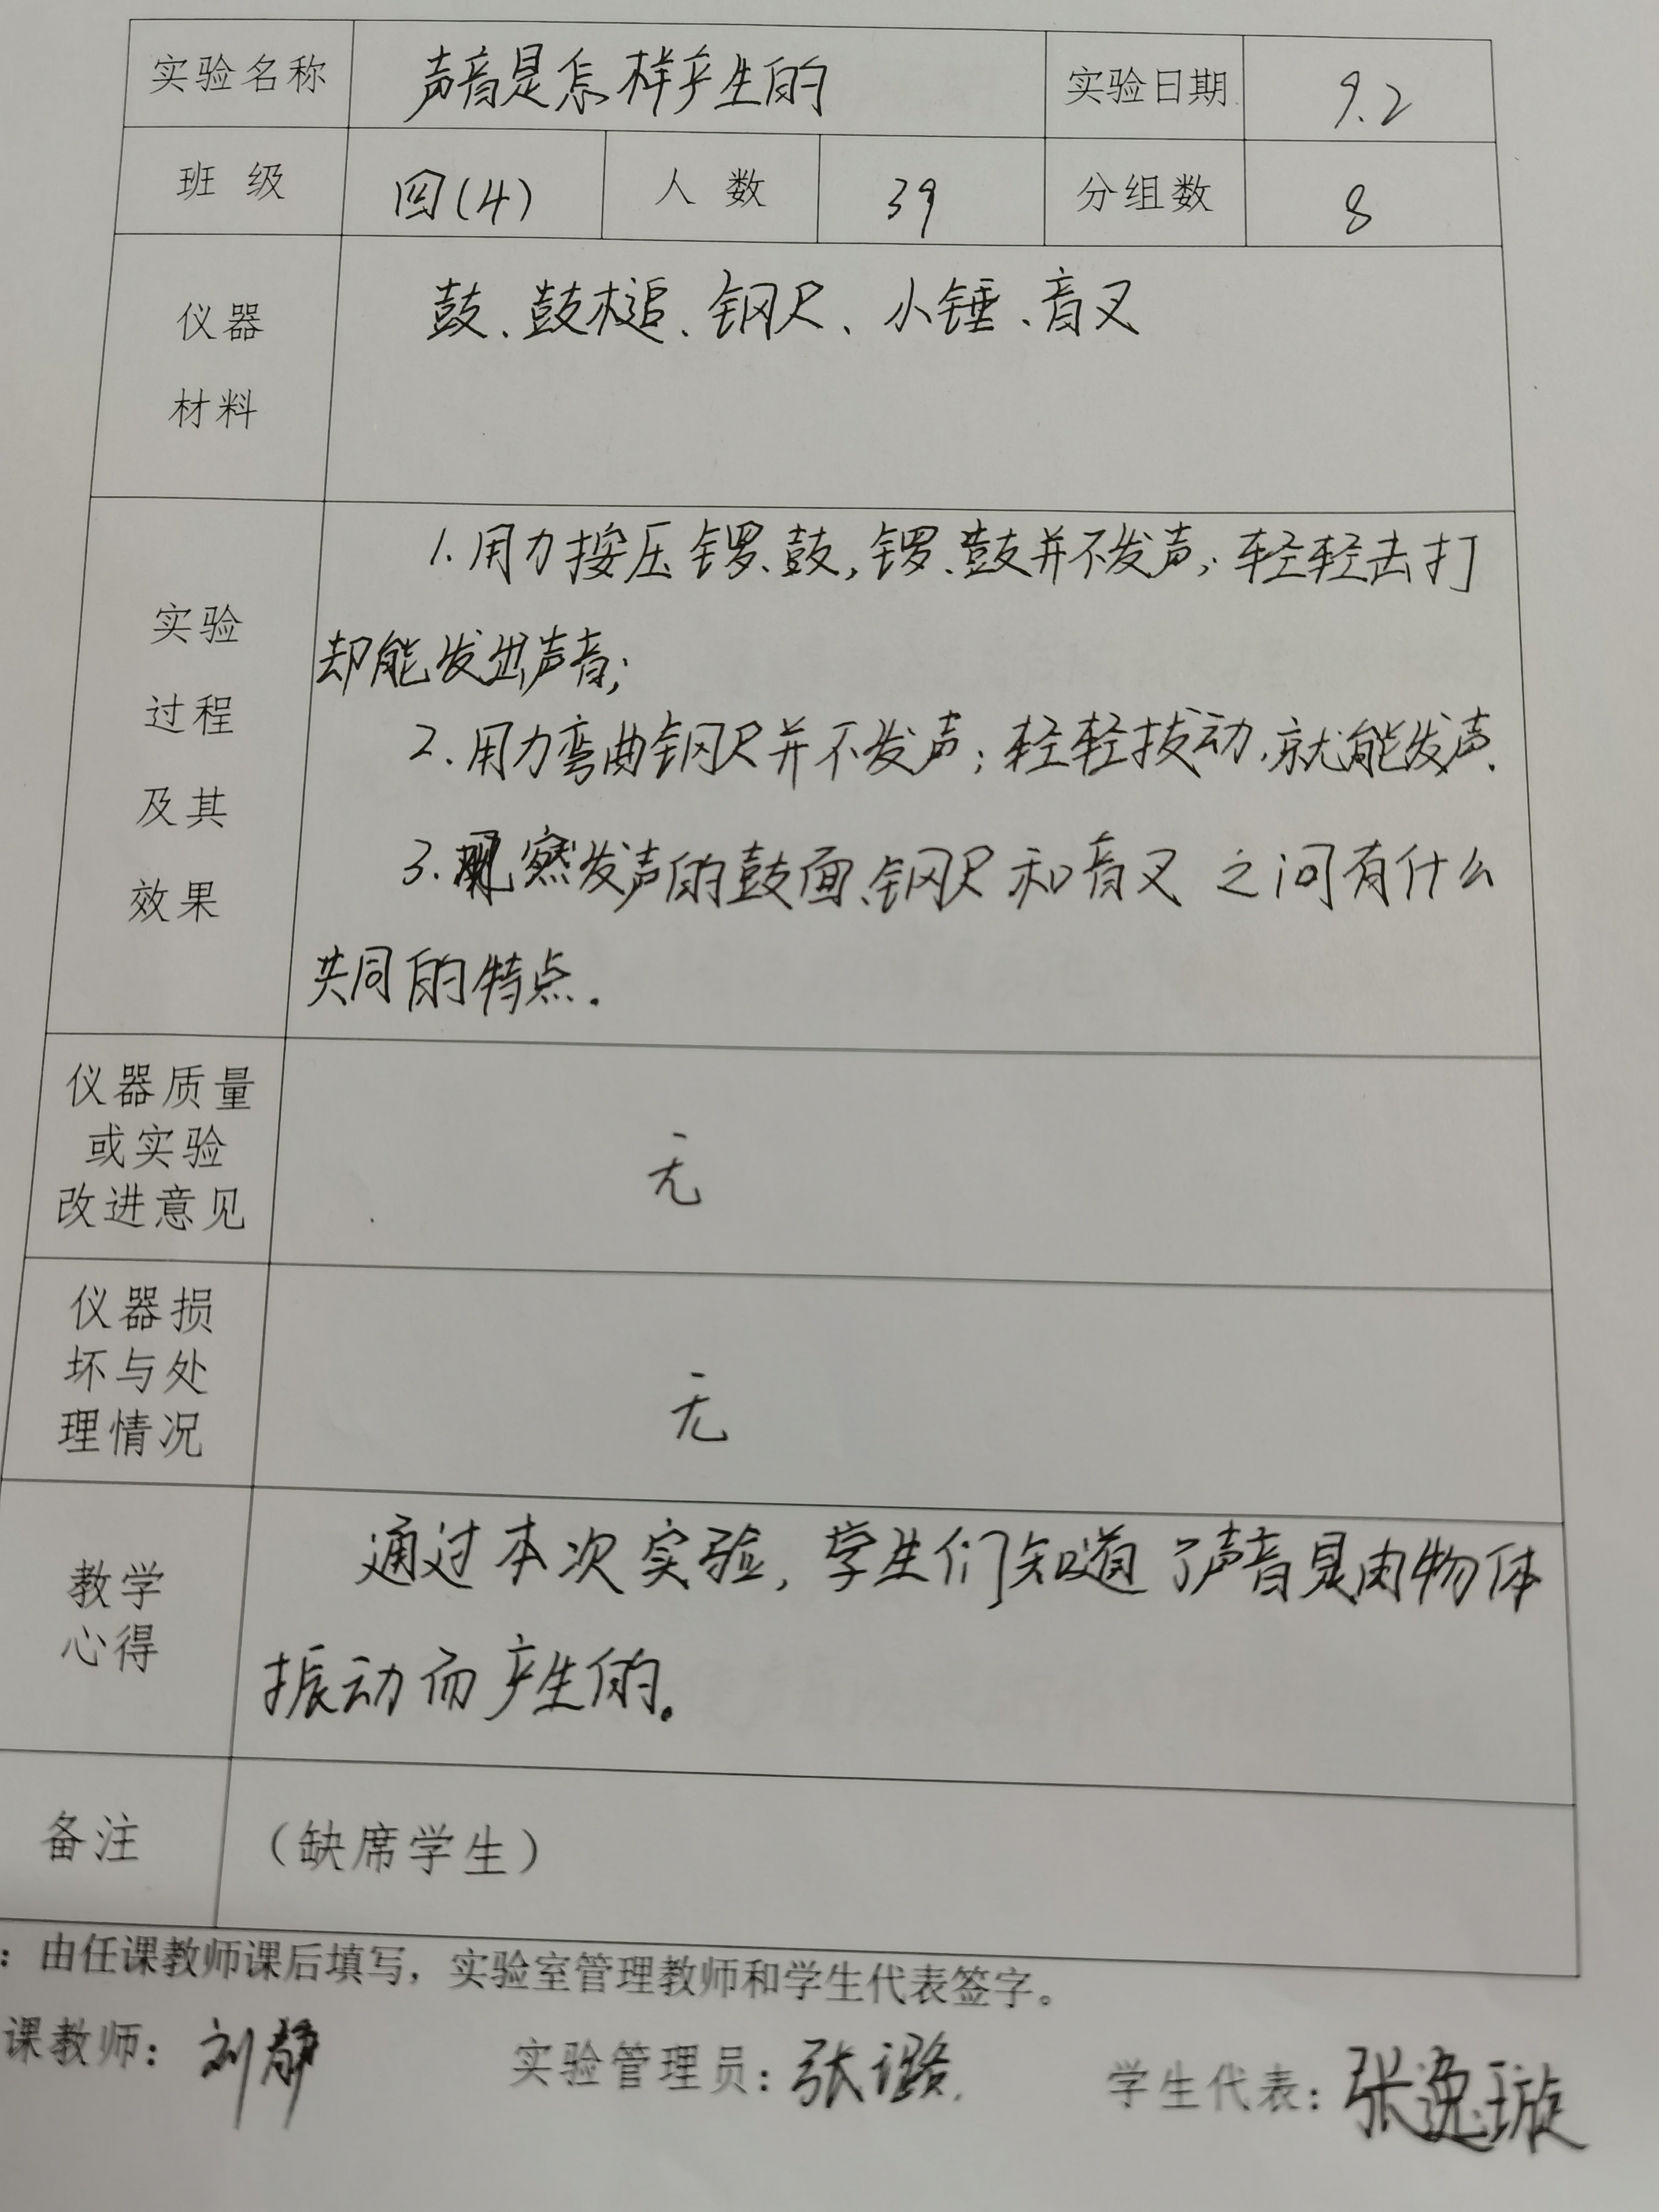 实验名称 声音是怎样产生的 实验日期 9.2
班 级 四(4) 人 数 39 分组数 8
仪器 鼓、鼓槌、钢尺、小锤、音叉
材料
1.用力按压锣、鼓,锣、鼓并不发声;轻轻击打
实验
却能发出声音;
过程
2.用力弯曲钢尺并不发声;轻轻拨动,就能发声.
及其
3.观察发声的鼓面、钢尺和音叉之间有什么
效果
共同的特点.
仪器质量
或实验 无
改进意见
仪器损
坏与处 无
理情况
通过本次实验,学生们知道了声音是由物体
教学
心得
振动而产生的。
备注 (缺席学生)
:由任课教师课后填写,实验室管理教师和学生代表签字。
课教师:刘静 实验管理员:张璐 学生代表:张逸璇